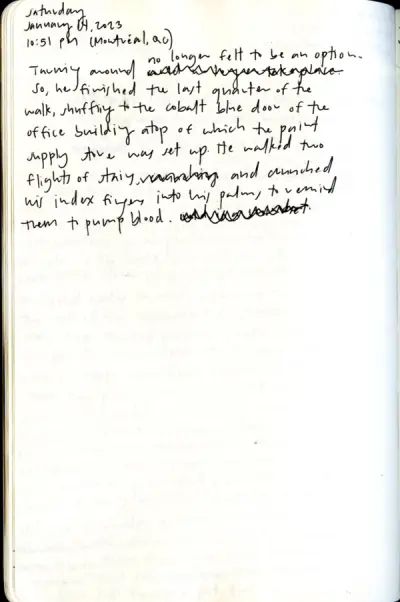 Saturday
January 14, 2023
10:51 PM (Montréal, QC)
no longer felt to be an option.
Turning around
So, he finished the last quarter of the
walk, shuffling to the cobalt blue door of the
office building atop of which the paint
supply store was set up. He walked two
flights of stairs, and crunched
his index fingers into his palms, to remind
them to pump blood.